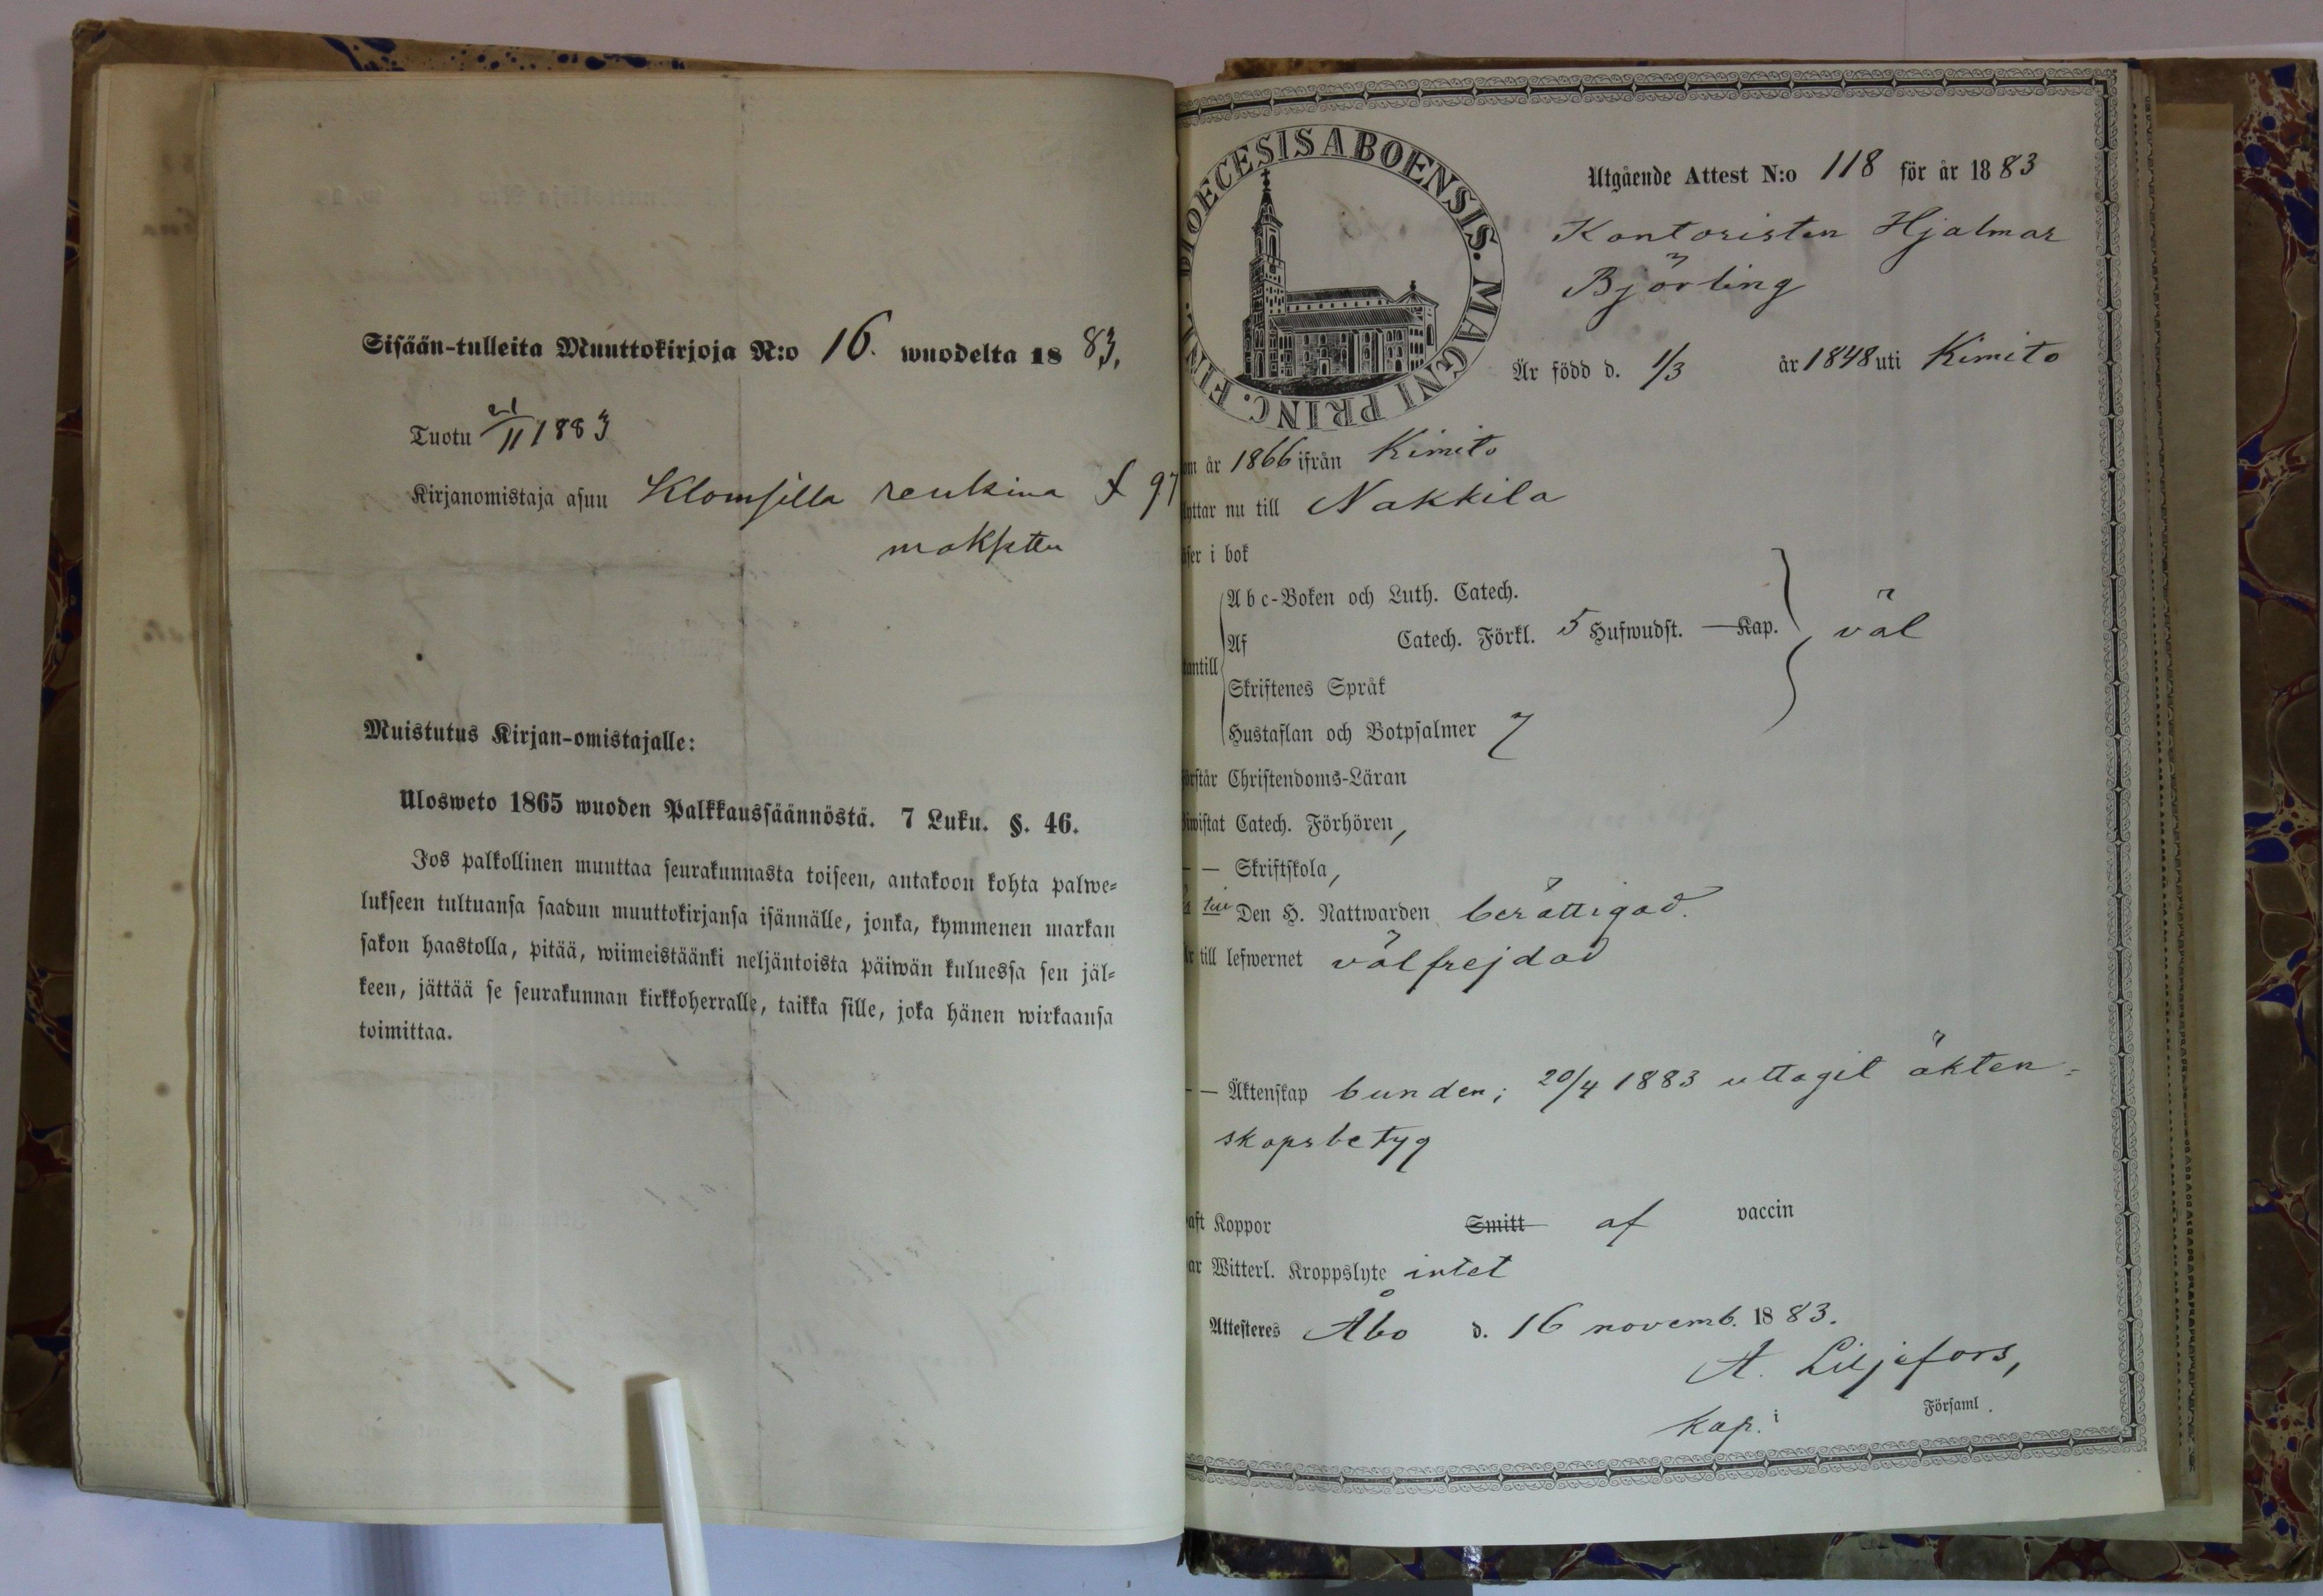 Sisään-tulleita Muuttokirjoja N:o 16. wuodelta 1883.
Tuotu 21/11 1883
Kirjanomistaja asuu renkinä
Muistutus Kirjan-omistajalle:
Ulosweto 1865 wuoden Palkkaussäännöstä. 7 Luku. §. 46.
Jos palkollinen muuttaa seurakunnasta toiseen, antakoon kohta palwe-
lukseen tultuansa saadun muuttokirjansa isännälle, jonka, kymmenen markan
sakon haastolla, pitää, wiimeistäänki neljäntoista päiwän kuluessa sen jäl-
keen, jättää se seurakunnan kirkkoherralle, taikka sille, joka hänen wirkaansa
toimittaa.
DIOECESIS ABOENSIS. MAGNI PRINC. FINL.
Utgående Attest N:o 118 för år 1883
Kontoristen Hjalmar
Björling
Är född d. 1/3 år 1848 uti Kimito
om år 1866 ifrån Kimito
yttar nu till Nakkila
äser i bok
Abc-Boken och Luth. Catech.
Af Catech. Förkl. 5 Hufwudst. Kap. väl
tantill
Skriftenes Språk
Hustaflan och Botpsalmer 7
örstår Christendoms-Läran
iwistat Catech. Förhören,
— — Skriftskola,
till Den H. Nattwarden berättigad.
Är till lefwernet välfrejdad
— — Äktenskap bunden; 20/4 1883 uttagit äkten-
skapsbetyg
aft Koppor Smitt af vaccin
ar Witterl. Kroppslyte intet
Attesteres Åbo d. 16 novemb. 1883.
A. Liljefors,
kap. i Församl.